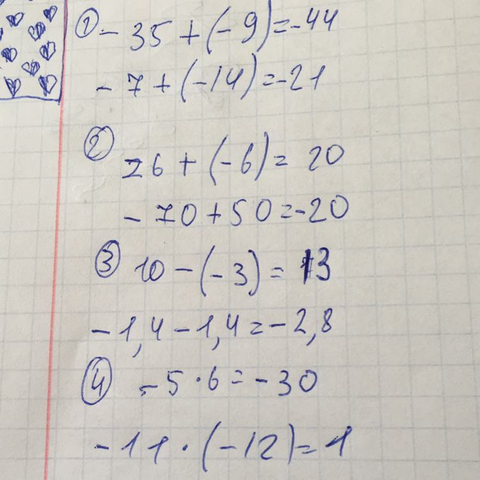 ① - 35 + (-9) = -44
- 7 + (-14) = -21
② 26 + (-6) = 20
- 70 + 50 = -20
③ 10 - (-3) = 13
- 1,4 - 1,4 = -2,8
④ -5 · 6 = -30
- 11 · (-12) = 1